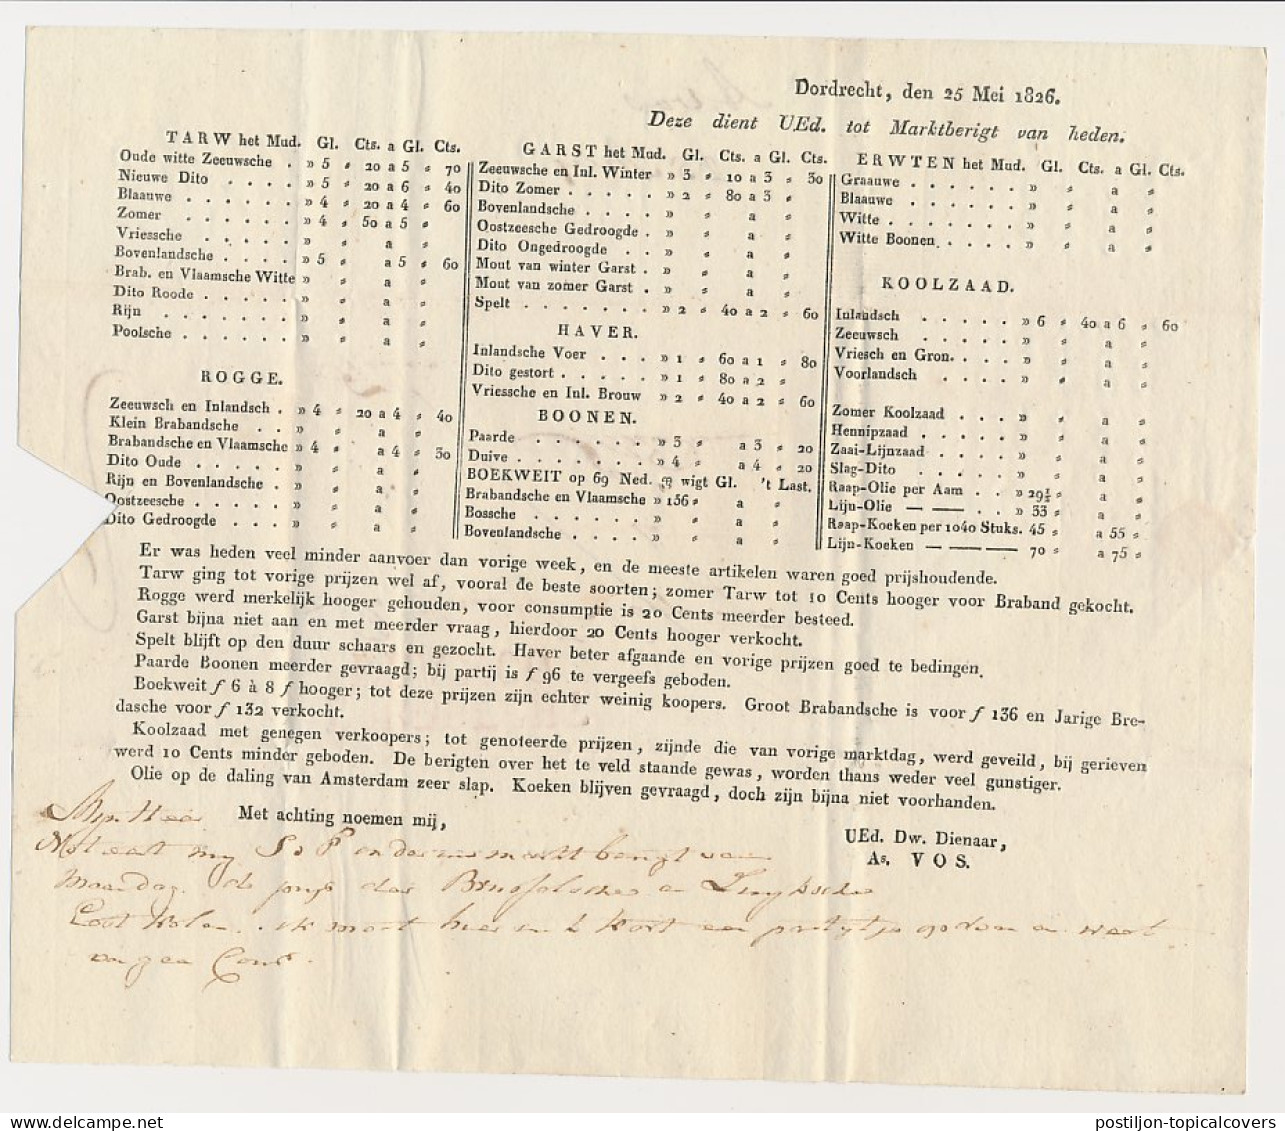 Dordrecht, den 25 Mei 1826.
Deze dient UEd. tot Marktberigt van heden.
TARW het Mud. Gl. Cts. a Gl. Cts.
Oude witte Zeeuwsche . » 5 〃 20 a 5 〃 70
Nieuwe Dito . . . . » 5 〃 20 a 6 〃 40
Blaauwe . . . . . . » 4 〃 20 a 4 〃 60
Zomer . . . . . . » 4 〃 50 a 5 〃
Vriessche . . . . . » 〃 a 〃
Bovenlandsche . . . . » 5 〃 a 5 〃 60
Brab. en Vlaamsche Witte » 〃 a 〃
Dito Roode . . . . . » 〃 a 〃
Rijn . . . . . . . » 〃 a 〃
Poolsche . . . . . . » 〃 a 〃
ROGGE.
Zeeuwsch en Inlandsch . » 4 〃 20 a 4 〃 40
Klein Brabandsche . . » 〃 a 〃
Brabandsche en Vlaamsche » 4 〃 a 4 〃 30
Dito Oude . . . . . » 〃 a 〃
Rijn en Bovenlandsche . » 〃 a 〃
Oostzeesche . . . . » 〃 a 〃
Dito Gedroogde . . . » 〃 a 〃
GARST het Mud. Gl. Cts. a Gl. Cts.
Zeeuwsche en Inl. Winter » 3 〃 10 a 3 〃 30
Dito Zomer . . . . . » 2 〃 80 a 3 〃
Bovenlandsche . . . . » 〃 a 〃
Oostzeesche Gedroogde . » 〃 a 〃
Dito Ongedroogde . . » 〃 a 〃
Mout van winter Garst . » 〃 a 〃
Mout van zomer Garst . » 〃 a 〃
Spelt . . . . . . . » 2 〃 40 a 2 〃 60
HAVER.
Inlandsche Voer . . . » 1 〃 60 a 1 〃 80
Dito gestort . . . . . » 1 〃 80 a 2 〃
Vriessche en Inl. Brouw » 2 〃 40 a 2 〃 60
BOONEN.
Paarde . . . . . . » 3 〃 a 3 〃 20
Duive . . . . . . . » 4 〃 a 4 〃 20
BOEKWEIT op 69 Ned. ℔ wigt Gl. 't Last.
Brabandsche en Vlaamsche » 136 〃 a 〃
Bossche . . . . . . » 〃 a 〃
Bovenlandsche . . . . » 〃 a 〃
ERWTEN het Mud. Gl. Cts. a Gl. Cts.
Graauwe . . . . . . » 〃 a 〃
Blaauwe . . . . . . » 〃 a 〃
Witte . . . . . . . » 〃 a 〃
Witte Boonen . . . . » 〃 a 〃
KOOLZAAD.
Inlandsch . . . . . » 6 〃 40 a 6 〃 60
Zeeuwsch . . . . . » 〃 a 〃
Vriesch en Gron. . . . » 〃 a 〃
Voorlandsch . . . . » 〃 a 〃
Zomer Koolzaad . . . » 〃 a 〃
Hennipzaad . . . . . » 〃 a 〃
Zaai-Lijnzaad . . . . » 〃 a 〃
Slag-Dito . . . . . » 〃 a 〃
Raap-Olie per Aam . . » 29½ 〃 a 〃
Lijn-Olie — — . . » 33 〃 a 〃
Raap-Koeken per 1040 Stuks. 45 〃 a 55 〃
Lijn-Koeken — — — 70 〃 a 75 〃
Er was heden veel minder aanvoer dan vorige week, en de meeste artikelen waren goed prijshoudende.
Tarw ging tot vorige prijzen wel af, vooral de beste soorten; zomer Tarw tot 10 Cents hooger voor Braband gekocht.
Rogge werd merkelijk hooger gehouden, voor consumptie is 20 Cents meerder besteed.
Garst bijna niet aan en met meerder vraag, hierdoor 20 Cents hooger verkocht.
Spelt blijft op den duur schaars en gezocht. Haver beter afgaande en vorige prijzen goed te bedingen.
Paarde Boonen meerder gevraagd; bij partij is f 96 te vergeefs geboden.
Boekweit f 6 à 8 f hooger; tot deze prijzen zijn echter weinig koopers. Groot Brabandsche is voor f 136 en Jarige Bre-
dasche voor f 132 verkocht.
Koolzaad met genegen verkoopers; tot genoteerde prijzen, zijnde die van vorige marktdag, werd geveild, bij gerieven
werd 10 Cents minder geboden. De berigten over het te veld staande gewas, worden thans weder veel gunstiger.
Olie op de daling van Amsterdam zeer slap. Koeken blijven gevraagd, doch zijn bijna niet voorhanden.
Met achting noemen mij,
UEd. Dw. Dienaar,
As. VOS.
Mijn Heer
my S v P onder
maandag de prijs der Brusselsche en
ik moet hier in t kort een partijtje
postiljon-topicalcovers